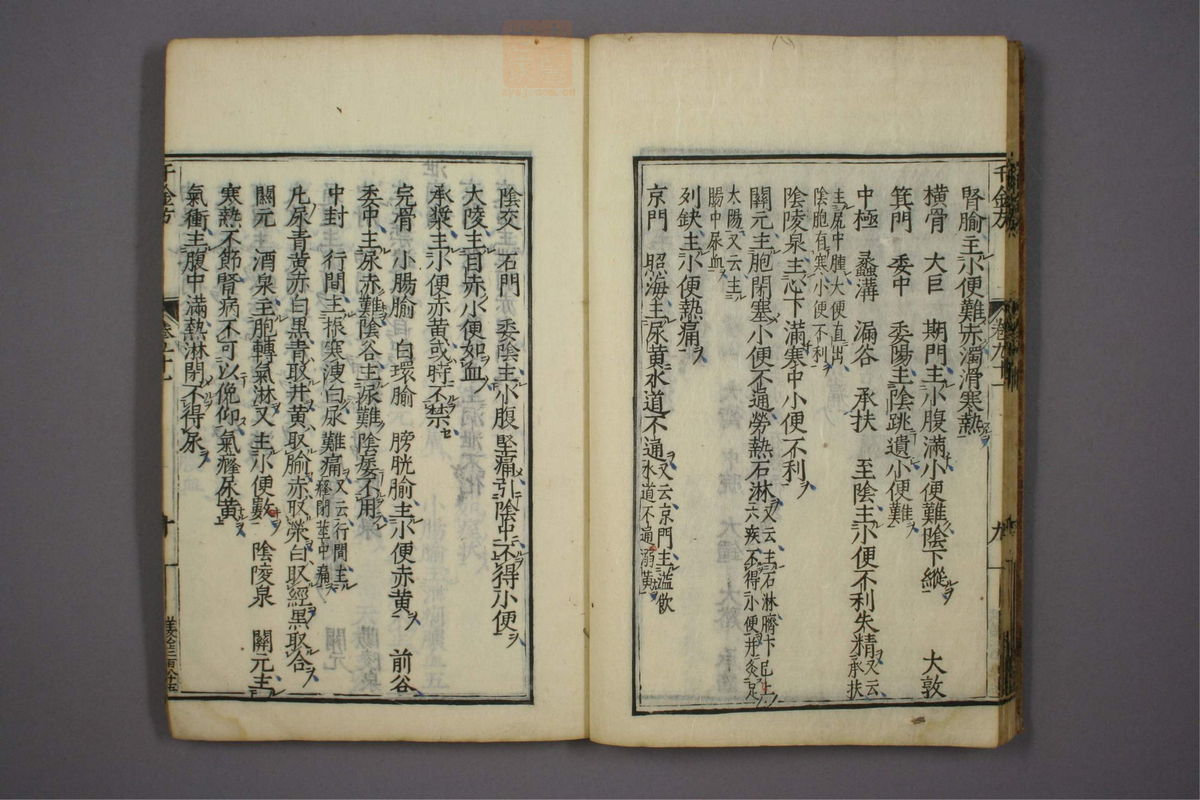 千金方
卷九十一
九
腎腧主小便難赤濁滑寒熱
橫骨 大巨 期門主小腹滿小便難陰下縱 大敦
箕門 委中 委陽主陰跳遺小便難
中極 蠡溝 漏谷 承扶 至陰主小便不利失精又云承扶
主尻中腫大便直出
陰胞有寒小便不利
陰陵泉主心下滿寒中小便不利
關元主胞閉塞小便不通勞熱石淋又云主石淋臍下
六疾不得小便并灸足
太陽又云主
腸中尿血
列缺主小便熱痛
京門 照海主尿黃水道不通又云京門主溢飲
水道不通溺黃
陰交 石門 委陰主小腹堅痛引陰中不得小便
大陵主目赤小便如血
承漿主小便赤黃或時不禁
完骨 小腸腧 白環腧 膀胱腧主小便赤黃 前谷
委中主尿赤難陰谷主尿難陰痿不用
中封 行間主振寒溲白尿難痛又云行間主
癃閉莖中痛
凡尿青黃赤白黑青取井黃取腧赤取滎白取經黑取合
關元 酒泉主胞轉氣淋又主小便數 陰陵泉 關元主
寒熱不節腎病不可以俛仰氣癃尿黃
氣衝主腹中滿熱淋閉不得尿
千金方
十